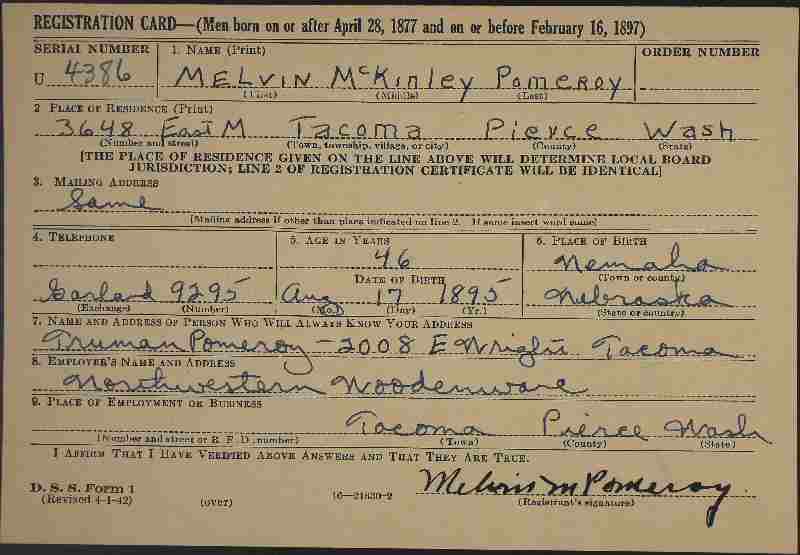 REGISTRATION CARD—(Men born on or after April 28, 1877 and on or before February 16, 1897)
SERIAL NUMBER 1. NAME (Print) ORDER NUMBER
U 4386 MELVIN McKinley Pomeroy
(First) (Middle) (Last)
2 PLACE OF RESIDENCE (Print)
3648 East M Tacoma Pierce Wash
(Number and street) (Town, township, village, or city) (County) (State)
[THE PLACE OF RESIDENCE GIVEN ON THE LINE ABOVE WILL DETERMINE LOCAL BOARD
JURISDICTION; LINE 2 OF REGISTRATION CERTIFICATE WILL BE IDENTICAL]
3. MAILING ADDRESS
Same
[Mailing address if other than place indicated on line 2. If same insert word same]
4. TELEPHONE 5. AGE IN YEARS 6. PLACE OF BIRTH
46 Nemaha
DATE OF BIRTH (Town or county)
Garland 9295 Aug 17 1895 Nebraska
(Exchange) (Number) (Mo.) (Day) (Yr.) (State or country)
7. NAME AND ADDRESS OF PERSON WHO WILL ALWAYS KNOW YOUR ADDRESS
Truman Pomeroy - 2008 E Wright Tacoma
8. EMPLOYER'S NAME AND ADDRESS
Northwestern Woodenware
9. PLACE OF EMPLOYMENT OR BUSINESS
Tacoma Pierce Wash
(Number and street or R. F. D. number) (Town) (County) (State)
I AFFIRM THAT I HAVE VERIFIED ABOVE ANSWERS AND THAT THEY ARE TRUE.
D. S. S. Form 1
(Revised 4-1-42) (over) 16—21630-2 Melvin M Pomeroy
(Registrant's signature)